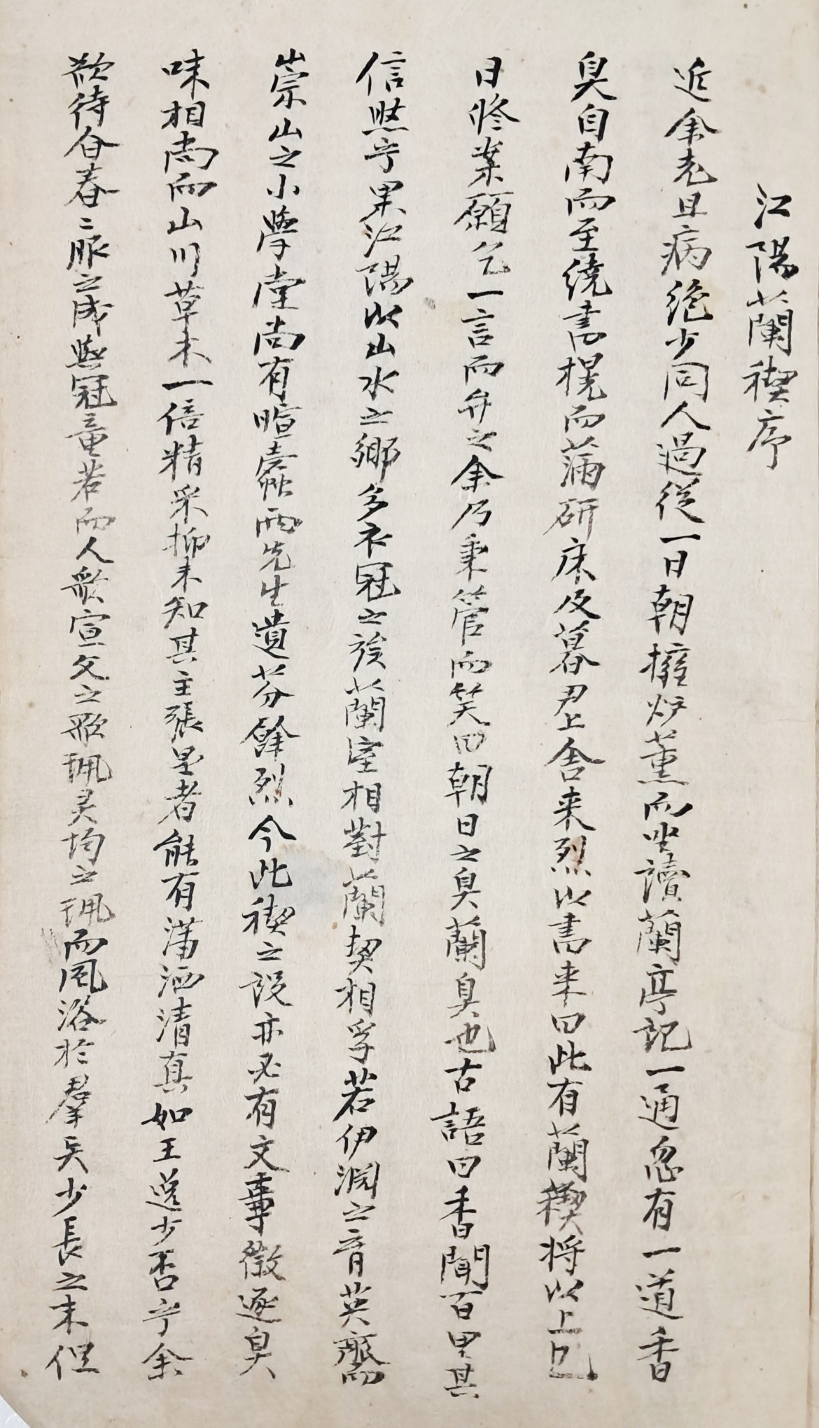 江陽蘭禊序
近余老且病絶少同人過從一日朝擁炉薰而坐讀蘭亭記一通忽有一道香
臭自南而至繞書榥而蒲研床及暮尹上舍来烈以書来曰此有蘭禊将以上巳
日修案願乞一言而弁之余乃秉管而笑曰朝日之臭蘭臭也古語曰香聞百里其
信然乎果江陽以山水之鄉多衣冠之族蘭室相對蘭契相孚若伊洞之音英齋
崇山之小學堂尚有暄蠹兩先生遺芬餘烈今此禊之設亦必有文事徵逐臭
味相尚而山川草木一倍精采抑未知其主張是者能有瀟洒清真如王逸少否乎余
欲待合春〻服之成與冠童若而人歌宣父之歌珮灵均之珮而風浴於羣玄少長之末但